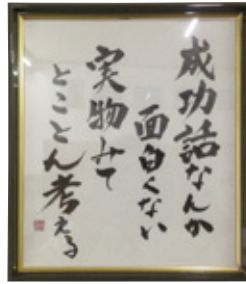 成功話なんか
面白くない
実物みて
とことん考える